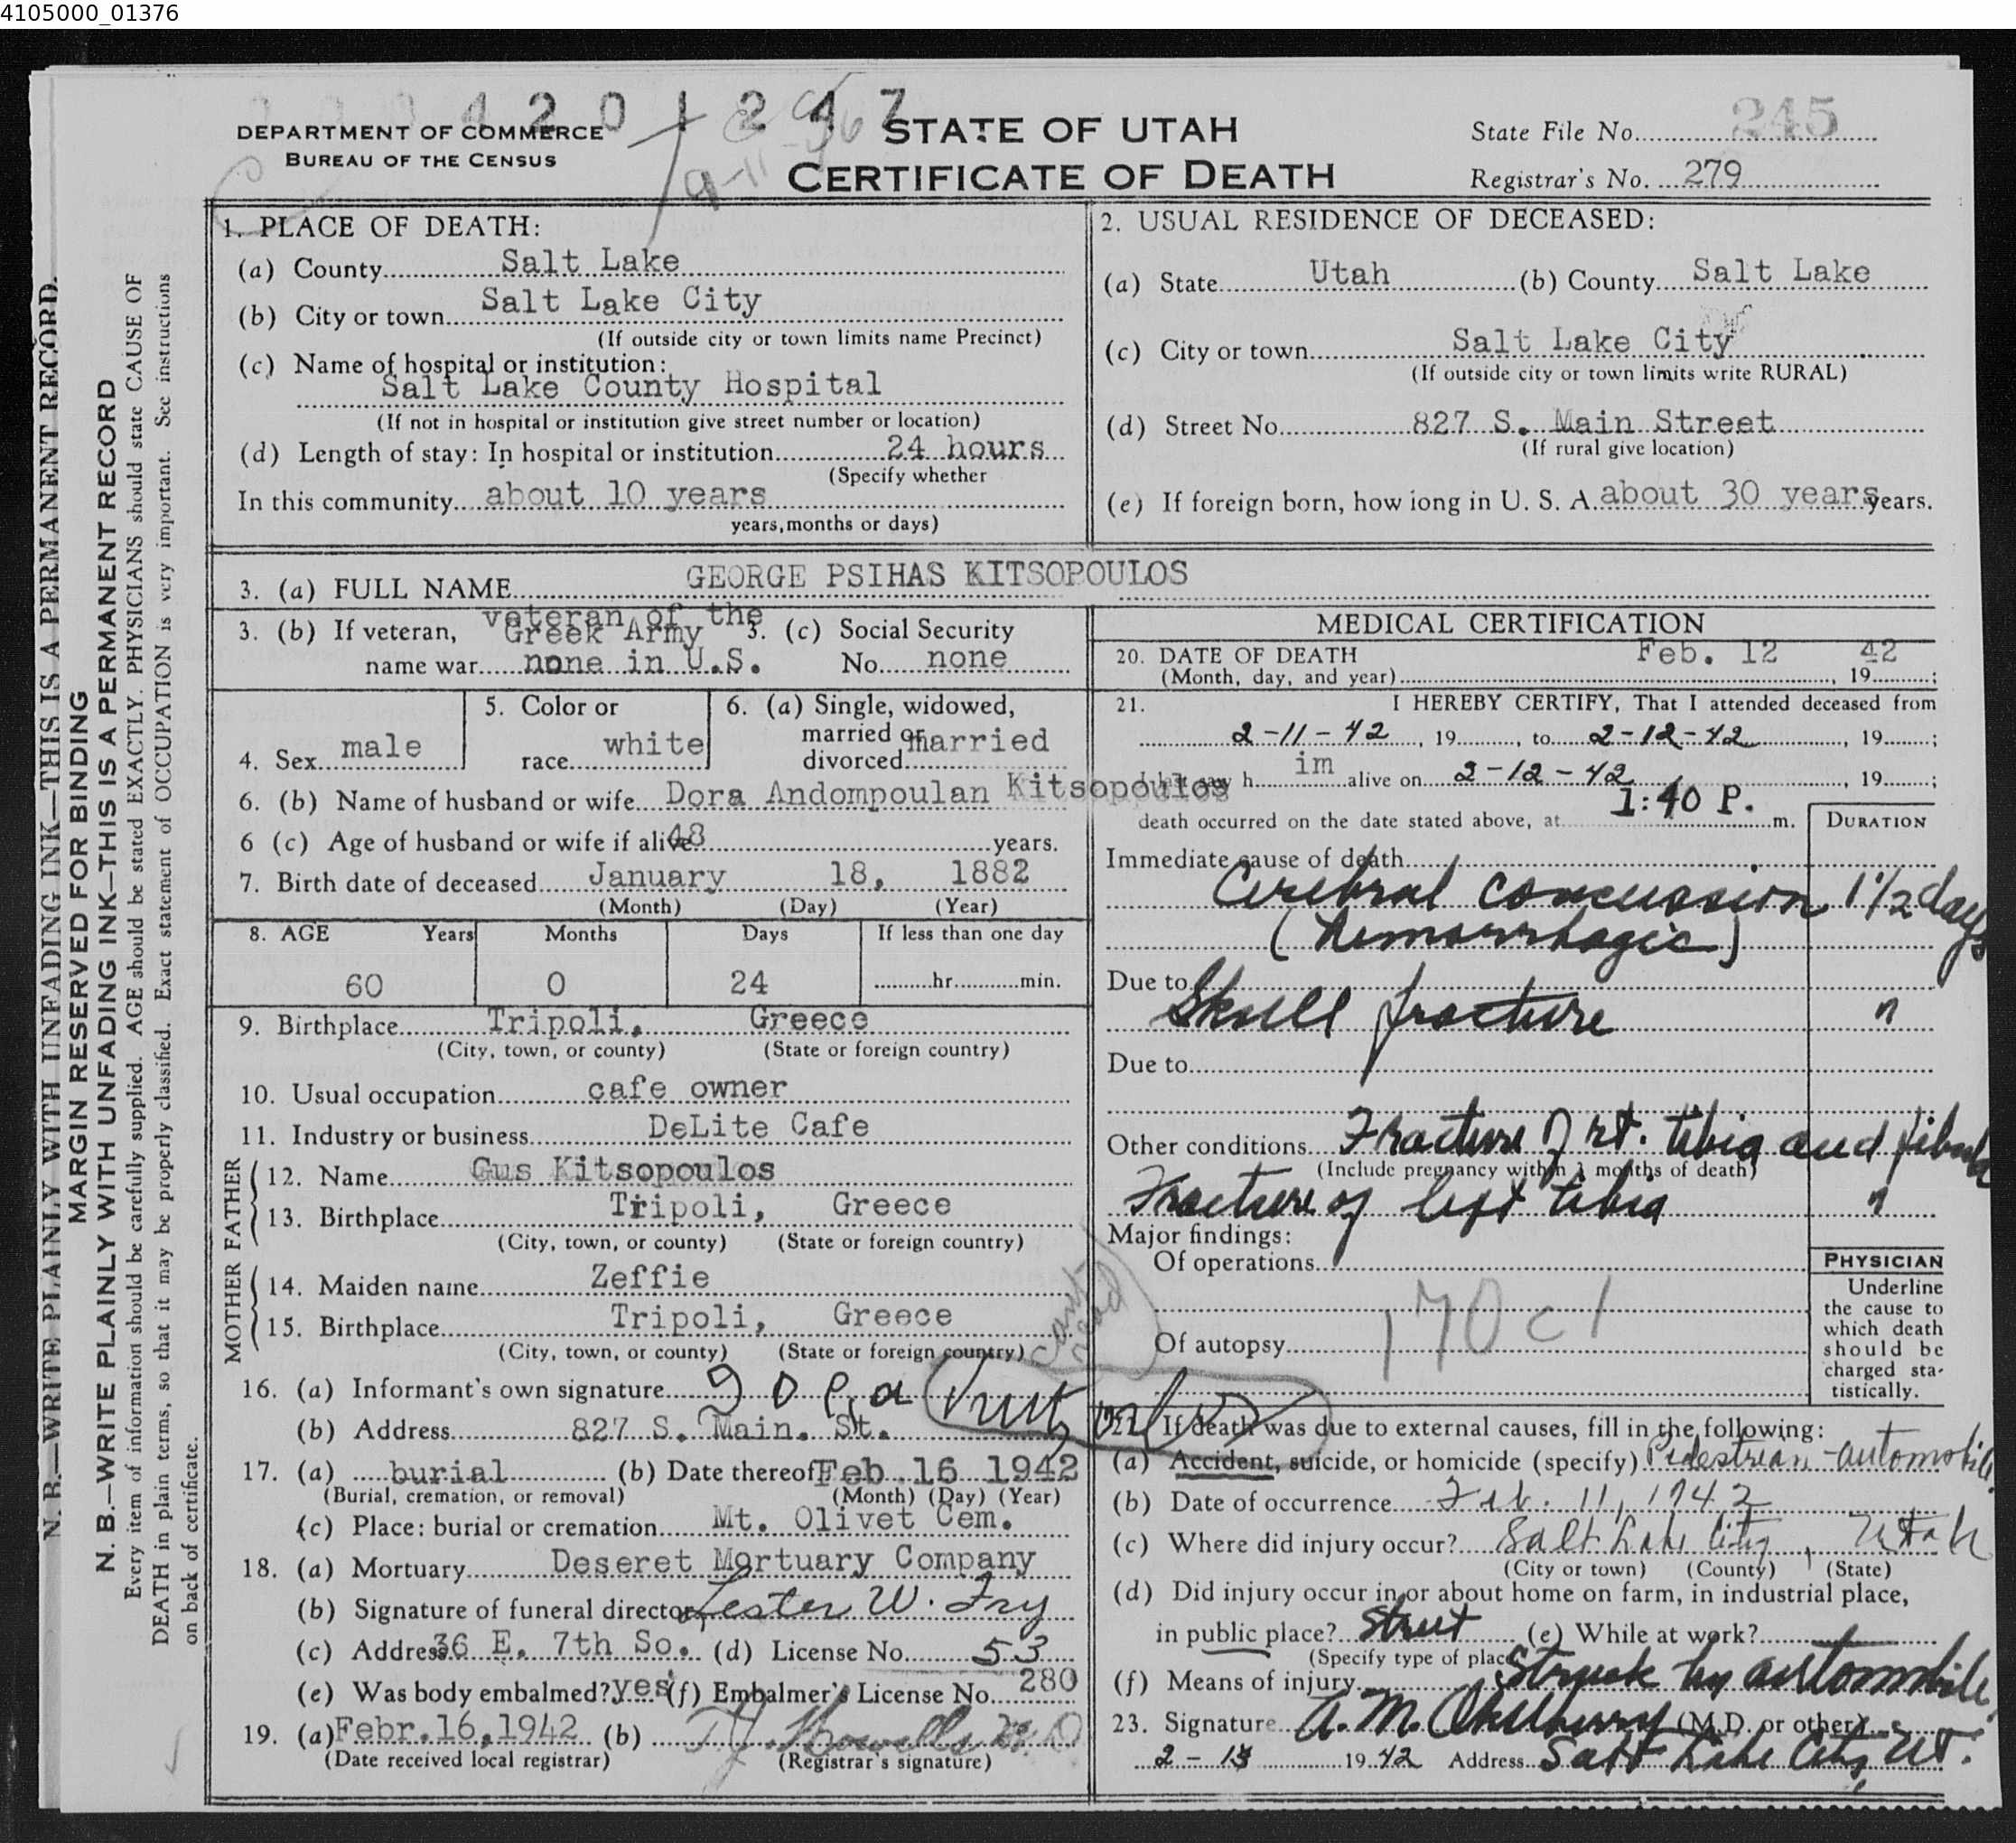 4105000_01376
4 2 0 1 2 4 7
DEPARTMENT OF COMMERCE
BUREAU OF THE CENSUS
STATE OF UTAH
CERTIFICATE OF DEATH
State File No. 245
Registrar's No. 279
N. B.—WRITE PLAINLY WITH UNFADING INK—THIS IS A PERMANENT RECORD.
MARGIN RESERVED FOR BINDING
N. B.—WRITE PLAINLY WITH UNFADING INK—THIS IS A PERMANENT RECORD
Every item of information should be carefully supplied. AGE should be stated EXACTLY. PHYSICIANS should state CAUSE OF
DEATH in plain terms, so that it may be properly classified. Exact statement of OCCUPATION is very important. See instructions
on back of certificate.
1. PLACE OF DEATH:
(a) County Salt Lake
(b) City or town Salt Lake City
(If outside city or town limits name Precinct)
(c) Name of hospital or institution:
Salt Lake County Hospital
(If not in hospital or institution give street number or location)
(d) Length of stay: In hospital or institution 24 hours
(Specify whether
In this community about 10 years
years, months or days)
2. USUAL RESIDENCE OF DECEASED:
(a) State Utah (b) County Salt Lake
(c) City or town Salt Lake City
(If outside city or town limits write RURAL)
(d) Street No. 827 S. Main Street
(If rural give location)
(e) If foreign born, how long in U. S. A. about 30 years years.
3. (a) FULL NAME GEORGE PSIHAS KITSOPOULOS
3. (b) If veteran, veteran of the Greek Army
name war none in U.S.
3. (c) Social Security
No. none
4. Sex male
5. Color or
race white
6. (a) Single, widowed,
married or
divorced married
6. (b) Name of husband or wife Dora Andompoulan Kitsopoulos
6 (c) Age of husband or wife if alive 48 years.
7. Birth date of deceased January 18, 1882
(Month) (Day) (Year)
8. AGE Years Months Days If less than one day
60 0 24 hr. min.
9. Birthplace Tripoli, Greece
(City, town, or county) (State or foreign country)
10. Usual occupation cafe owner
11. Industry or business DeLite Cafe
FATHER
12. Name Gus Kitsopoulos
13. Birthplace Tripoli, Greece
(City, town, or county) (State or foreign country)
MOTHER
14. Maiden name Zeffie
15. Birthplace Tripoli, Greece
(City, town, or county) (State or foreign country)
16. (a) Informant's own signature
(b) Address 827 S. Main. St.
17. (a) burial (b) Date thereof Feb 16 1942
(Burial, cremation, or removal) (Month) (Day) (Year)
(c) Place: burial or cremation Mt. Olivet Cem.
18. (a) Mortuary Deseret Mortuary Company
(b) Signature of funeral director Lester W. Fry
(c) Address 36 E. 7th So. (d) License No. 53
(e) Was body embalmed? yes (f) Embalmer's License No. 280
19. (a) Febr. 16, 1942 (b)
(Date received local registrar) (Registrar's signature)
MEDICAL CERTIFICATION
20. DATE OF DEATH Feb. 12 42
(Month, day, and year) , 19 ;
21. I HEREBY CERTIFY, That I attended deceased from
2-11-42, 19 , to 2-12-42, 19 ;
h im alive on 2-12-42, 19 ;
death occurred on the date stated above, at 1:40 P. m.
DURATION
Immediate cause of death
Cerebral concussion 1 1/2 days
(hemorrhagic)
Due to
Skull fracture "
Due to
Other conditions Fracture of rt. tibia and fibula
(Include pregnancy within 3 months of death)
Fracture of left tibia "
Major findings:
Of operations
170 c 1
Of autopsy
PHYSICIAN
Underline
the cause to
which death
should be
charged sta-
tistically.
22. If death was due to external causes, fill in the following:
(a) Accident, suicide, or homicide (specify) Pedestrian - automobile
(b) Date of occurrence Feb. 11, 1942
(c) Where did injury occur? Salt Lake City, Utah
(City or town) (County) (State)
(d) Did injury occur in or about home on farm, in industrial place,
in public place? Street (e) While at work?
(Specify type of place)
(f) Means of injury Struck by automobile
23. Signature A. M. (M.D. or other)
2-13 1942 Address Salt Lake City, Ut.